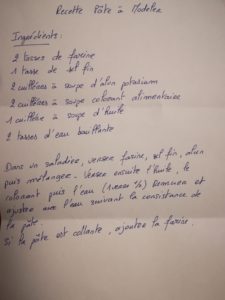 Recette Pâte à Modeler
Ingrédients :
2 tasses de farine
1 tasse de sel fin
2 cuillères à soupe d'alun potassium
2 cuillères à soupe colorant alimentaire
1 cuillère à soupe d'huile
2 tasses d'eau bouillante
Dans un saladier, verser farine, sel fin, alun
puis mélanger. Verser ensuite l'huile, le
colorant puis l'eau (1 verre ½) Remuer et
ajouter avec l'eau suivant la consistance de
la pâte.
Si la pâte est collante, ajouter la farine.